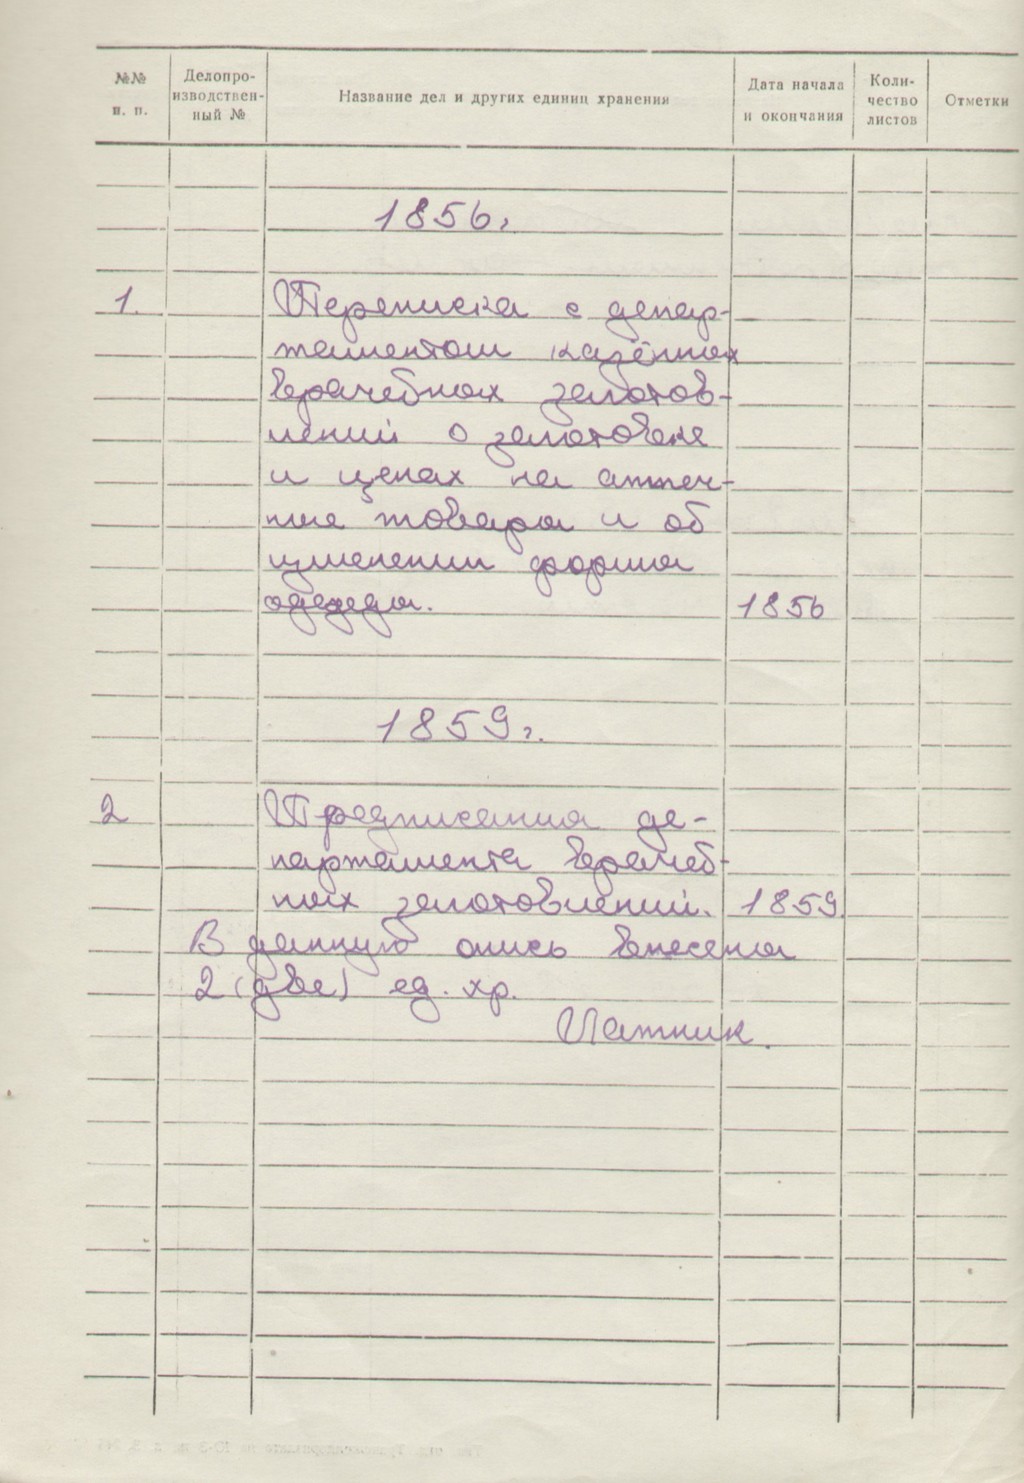 №№ п. п.
Делопро-
изводствен-
ный №
Название дел и других единиц хранения
Дата начала
и окончания
Коли-
чество
листов
Отметки
1856г.
1. Переписка с депар-
таментом казённых
врачебных заготов-
лений о заготовке
и ценах на аптеч-
ные товары и об
изменении формы
одежды. 1856
1859г.
2 Предписания де-
партамента врачеб-
ных заготовлений. 1859.
В данную опись внесены
2 (две) ед. хр.